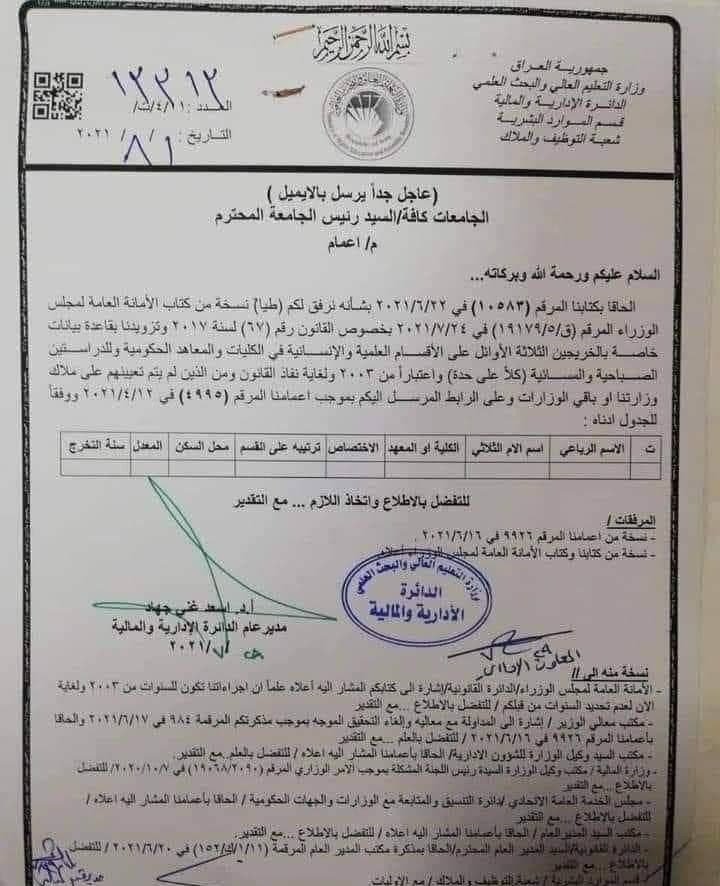 بسم الله الرحمن الرحيم
جمهورية العراق
وزارة التعليم العالي والبحث العلمي
الدائرة الإدارية والمالية
قسم الموارد البشرية
شعبة التوظيف والملاك
العدد: ت/٤/١١ ١٢٣١٣
التاريخ: / / ٢٠٢١
(عاجل جداً يرسل بالايميل )
الجامعات كافة/السيد رئيس الجامعة المحترم
م/ اعمام
السلام عليكم ورحمة الله وبركاته...
الحاقا بكتابنا المرقم (١٠٥٨٣) في ٢٠٢١/٦/٢٢ بشأنه نرفق لكم (طيا) نسخة من كتاب الأمانة العامة لمجلس
الوزراء المرقم (ق/١٩١٧٩/٥) في ٢٠٢١/٧/٢٤ بخصوص القانون رقم (٦٧) لسنة ٢٠١٧ وتزويدنا بقاعدة بيانات
خاصة بالخريجين الثلاثة الأوائل على الأقسام العلمية والإنسانية في الكليات والمعاهد الحكومية وللدراستين
الصباحية والمسائية (كلاً على حدة) واعتباراً من ٢٠٠٣ ولغاية نفاذ القانون ومن الذين لم يتم تعيينهم على ملاك
وزارتنا او باقي الوزارات وعلى الرابط المرسل اليكم بموجب اعمامنا المرقم (٤٩٩٥) في ٢٠٢١/٤/١٢ ووفقاً
للجدول ادناه :
ت الاسم الرباعي اسم الام الثلاثي الكلية او المعهد الاختصاص ترتيبه على القسم محل السكن المعدل سنة التخرج
للتفضل بالاطلاع واتخاذ اللازم ... مع التقدير
المرفقات /
- نسخة من اعمامنا المرقم ٩٩٢٦ في ٢٠٢١/٦/١٦ .
- نسخة من كتابنا وكتاب الأمانة العامة لمجلس الوزراء أعلاه
وزارة التعليم العالي والبحث العلمي
الدائرة
الأدارية والمالية
أ.د. اسعد غني جهاد
مدير عام الدائرة الإدارية والمالية
٢٠٢١/
نسخة منه الى //
- الأمانة العامة لمجلس الوزراء/الدائرة القانونية/إشارة الى كتابكم المشار اليه أعلاه علماً ان اجراءاتنا تكون للسنوات من ٢٠٠٣ ولغاية
الان لعدم تحديد السنوات من قبلكم / للتفضل بالأطلاع ...مع التقدير
- مكتب معالي الوزير / إشارة الى المداولة مع معاليه وإلغاء التحقيق الموجه بموجب مذكرتكم المرقمة ٩٨٤ في ٢٠٢١/٦/١٧ والحاقا
بأعمامنا المرقم ٩٩٢٦ في ٢٠٢١/٦/١٦ / للتفضل بالعلم ...مع التقدير
- مكتب السيد وكيل الوزارة للشؤون الادارية/ الحاقا بأعمامنا المشار اليه اعلاه / للتفضل بالعلم..مع التقدير.
- وزارة المالية / مكتب وكيل الوزارة السيدة رئيس اللجنة المشكلة بموجب الامر الوزاري المرقم (١٩٠٦٨/٢٠٩٠) في ٢٠٢٠/١٠/٧/ للتفضل
بالاطلاع ...مع التقدير
- مجلس الخدمة العامة الاتحادي /دائرة التنسيق والمتابعة مع الوزارات والجهات الحكومية / الحاقا بأعمامنا المشار اليه اعلاه /
للتفضل بالاطلاع ...مع التقدير
- مكتب السيد المدير العام / الحاقا بأعمامنا المشار اليه اعلاه / للتفضل بالاطلاع ...مع التقدير.
- الدائرة القانونية/السيد المدير العام المحترم/الحاقا بمذكرة مكتب المدير العام المرقمة (١٥٢/ك/١/١١) في ٢٠٢١/٦/٢٠ / للتفضل
بالاطلاع ...مع التقدير
- قسم الموارد البشرية / شعبة التوظيف والملاك / مع الاوليات